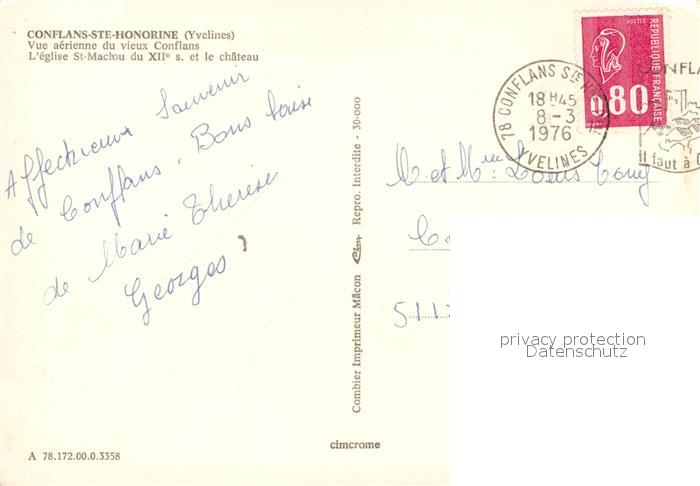 CONFLANS-STE-HONORINE (Yvelines)
Vue aérienne du vieux Conflans
L'église St-Maclou du XIIe s. et le château
Affectueux Souvenir
de Conflans. Bons baisers
de Marie Thérèse
Georges
A 78.172.00.0.3358
Combier Imprimeur Mâcon Cim Repro. Interdite - 30-000
cimcrome
POSTES
REPUBLIQUE FRANÇAISE
0.80
78 CONFLANS STE
18H45
8-3
1976
YVELINES
CONFLA
Il faut à
M et Mme Louis
511
privacy protection
Datenschutz